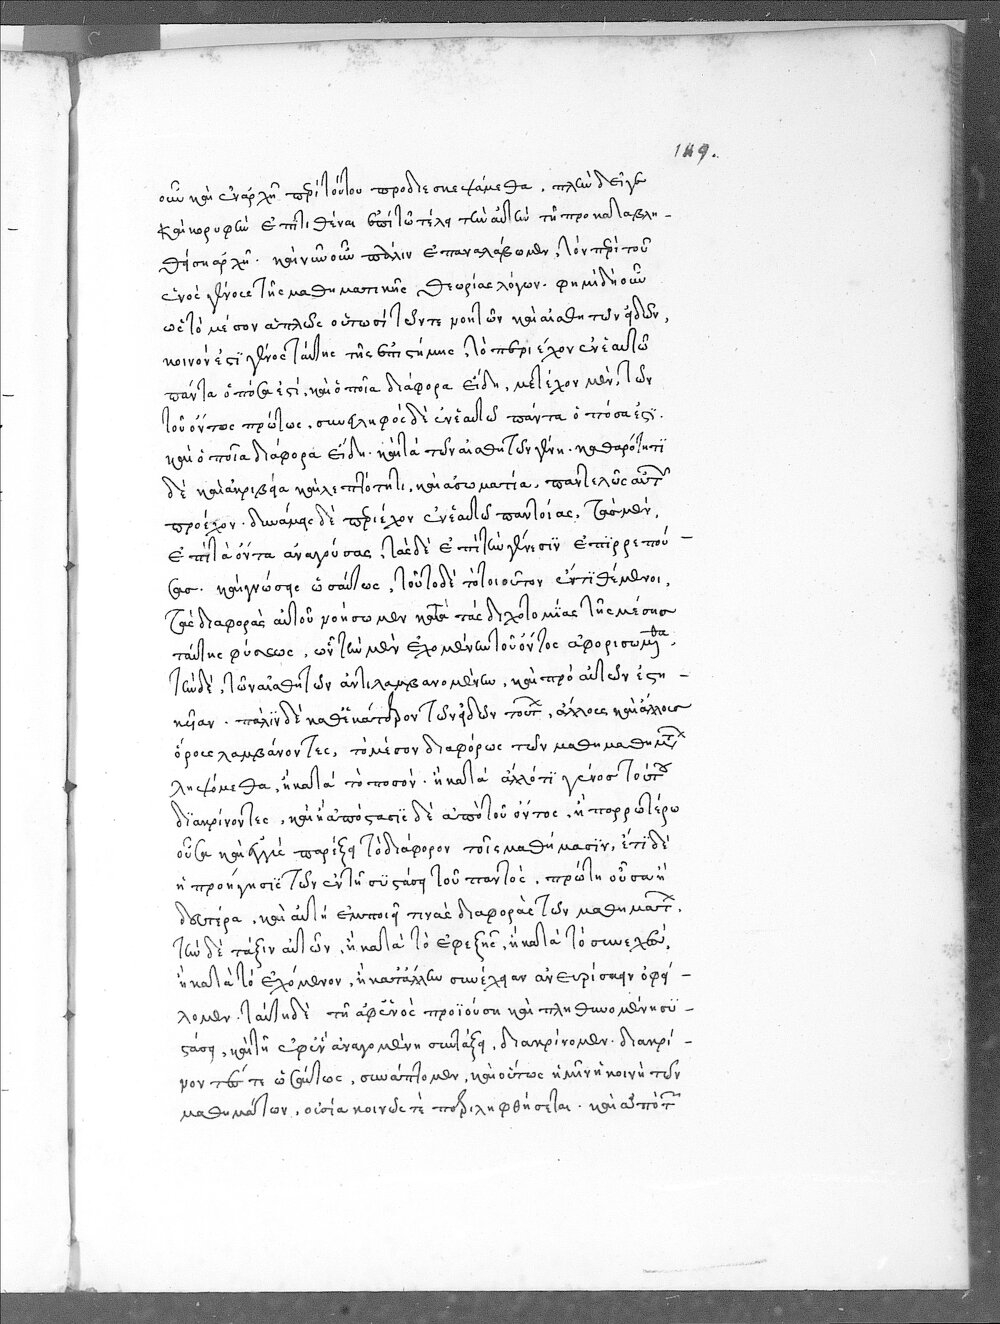 149.
οὖν καὶ ἐν ἀρχῇ περὶ τούτου προδιεσκεψάμεθα, πλὴν δεῖ γε
καὶ κορυφὴν ἐπιτιθέναι ἐπὶ τῷ τέλει τὴν αὐτὴν τῇ προκαταβλη-
θείσῃ ἀρχῇ. καὶ νῦν οὖν πάλιν ἐπαναλάβωμεν, τὸν περὶ τοῦ
ἑνὸς γένους τῆς μαθηματικῆς θεωρίας λόγον. φημὶ δὴ οὖν
ὡς τὸ μέσον ἁπλῶς οὑτωσὶ τῶν τε νοητῶν καὶ αἰσθητῶν εἰδῶν,
κοινόν ἐστι γένος ταύτης τῆς ἐπιστήμης, τὸ περιέχον ἐν ἑαυτῷ
πάντα ὁπόσα ἐστί, καὶ ὁποῖα διάφορα εἴδη, μετέχον μὲν, τῶν
τοῦ ὄντος πρώτως, συνειληφὸς δὲ ἐν ἑαυτῷ πάντα ὁπόσα ἐστι.
καὶ ὁποῖα διάφορα εἴδη. καὶ τὰ τῶν αἰσθητῶν γένη. καθαρότητι
δὲ καὶ ἀκριβείᾳ καὶ λεπτότητι, καὶ ἀσωματίᾳ, παντελῶς αὐτῶν
προέχον. δυνάμεις δὲ περιέχον ἐν ἑαυτῷ παντοίας, τὰς μὲν,
ἐπὶ τὰ ὄντα ἀναγούσας, τὰς δὲ ἐπὶ τὴν γένεσιν ἐπιρρεπού-
σας. καὶ γνώσεις ὡσαύτως, τοῦτο δὲ τὸ τοιοῦτον ἐντιθέμενοι,
τὰς διαφορὰς αὐτοῦ νοήσωμεν κατὰ τὰς διχοτομίας τῆς μέσης
ταύτης φύσεως, ὧν τὴν μὲν ἐχομένην τοῦ ὄντος ἀφορισώμεθα,
τὴν δὲ, τῶν αἰσθητῶν ἀντιλαμβανομένην, καὶ πρὸ αὐτῶν ἑστη-
κυῖαν. πάλιν δὲ καθ' ἑκάτερον τῶν εἰδῶν τούτων, ἄλλους καὶ ἄλλους
ὅρους λαμβάνοντες, τὸ μέσον διαφόρως τῶν μαθημαθημάτων
ληψόμεθα, ἢ κατὰ τὸ ποσόν. ἢ κατὰ ἄλλό τι γένος τούτου
διακρίνοντες, καὶ ἡ ἀπόστασις δὲ ἀπὸ τοῦ ὄντος, ἡ πορρωτέρω
οὖσα καὶ ἐγγὺς παρέξει τὸ διάφορον τοῖς μαθήμασιν, ἔτι δὲ
ἡ προήγησις τῶν ἐν τῇ συστάσει τοῦ παντὸς, πρώτη οὖσα ἢ
δευτέρα, καὶ αὐτὴ ἐμποιεῖ τινας διαφορὰς τῶν μαθημάτων.
τὴν δὲ τάξιν αὐτῶν, ἢ κατὰ τὸ ἐφεξῆς, ἢ κατὰ τὸ συνεχὲς,
ἢ κατὰ τὸ ἐχόμενον, ἢ κατ' ἄλλην συνέχειαν ἀνευρίσκειν ὀφεί-
λομεν. ταύτῃ δὲ τῇ ἀφ' ἑνὸς προϊούσῃ καὶ πληθυνομένῃ συ-
στάσει, καὶ τῇ ἐφ' ἓν ἀναγομένῃ συντάξει, διακρίνομεν. διακρί-
νοντές τε ὡσαύτως, συνάπτομεν, καὶ οὕτως ἡμῖν ἡ κοινὴ τῶν
μαθημάτων, οὐσία κοινῶς τε περιληφθήσεται. καὶ ἀπὸ τῶν